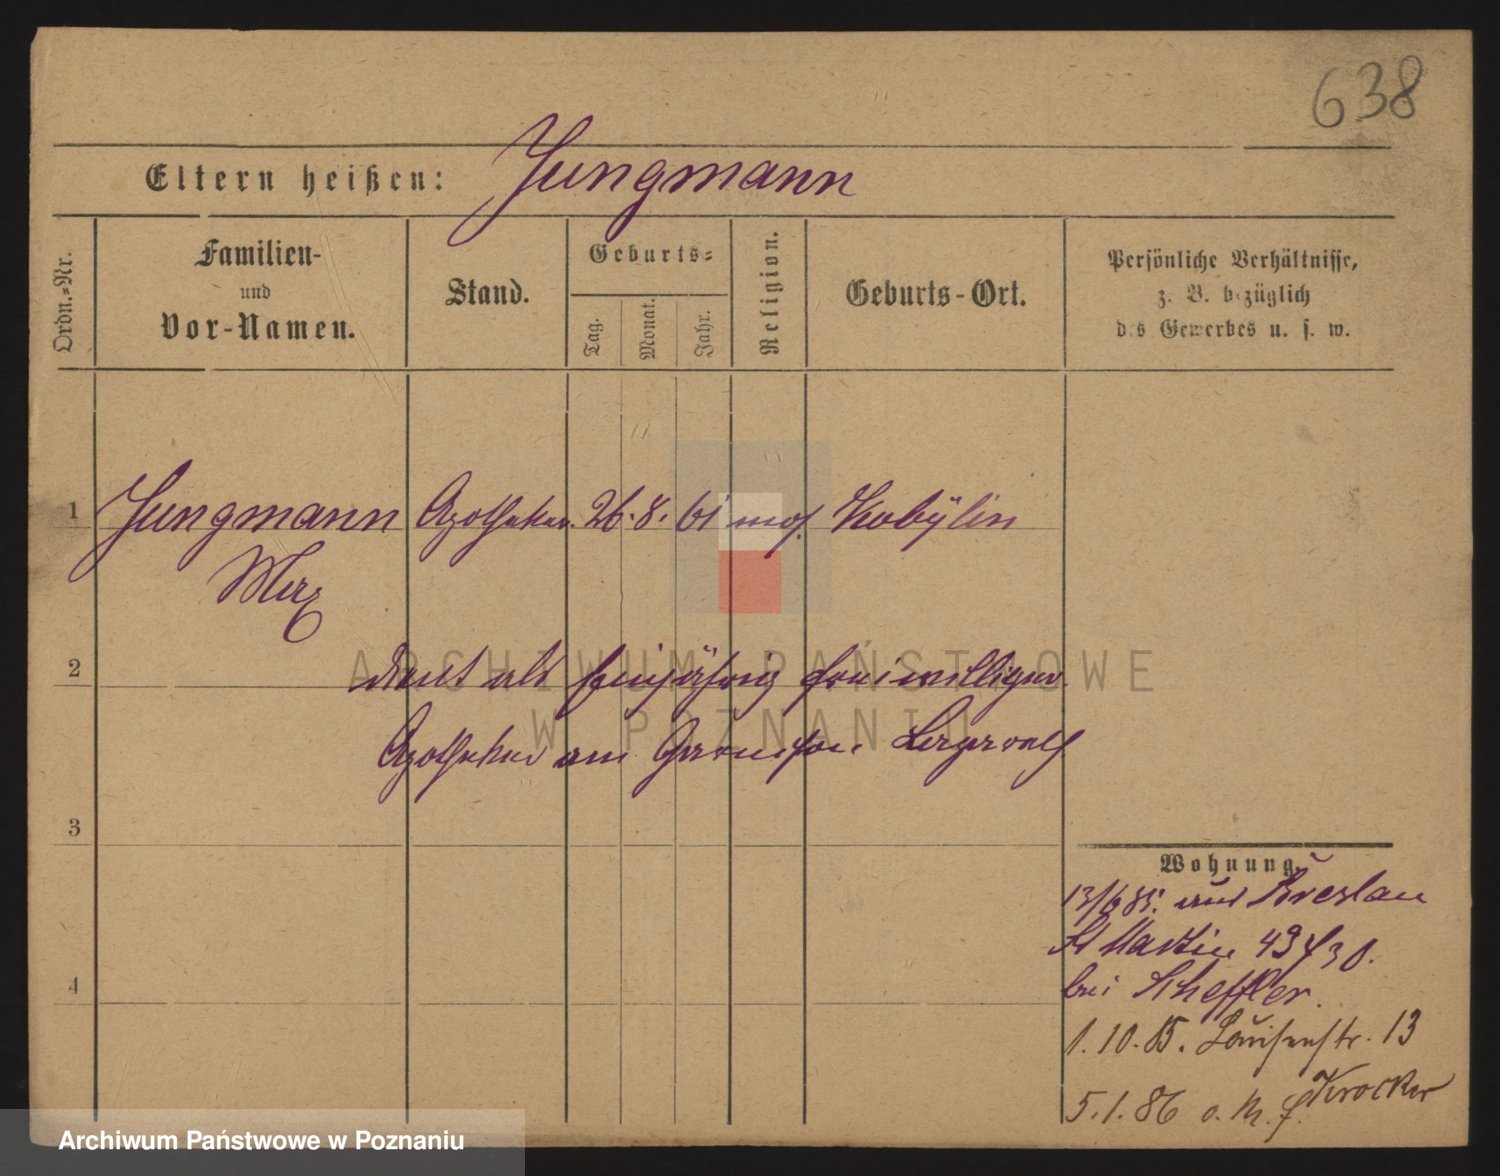 638
Eltern heißen: Jungmann
Ordn.-Nr.
Familien- und Vor-Namen.
Stand.
Geburts-
Tag.
Monat.
Jahr.
Religion.
Geburts-Ort.
Persönliche Verhältnisse,
z. B. bezüglich
des Gewerbes u. s. w.
1 Jungmann Apotheker. 26. 8. 61 mos. Kobylin
Max
2 dient als einjährig freiwilliger
Apotheker am Garnison
3
4
Wohnung.
13/6 85. aus Breslau
St Martin 43
bei Scheffler.
1. 10. 85. Louisenstr. 13
5. 1. 86 Krocker
ARCHIWUM PAŃSTWOWE
W POZNANIU
Archiwum Państwowe w Poznaniu